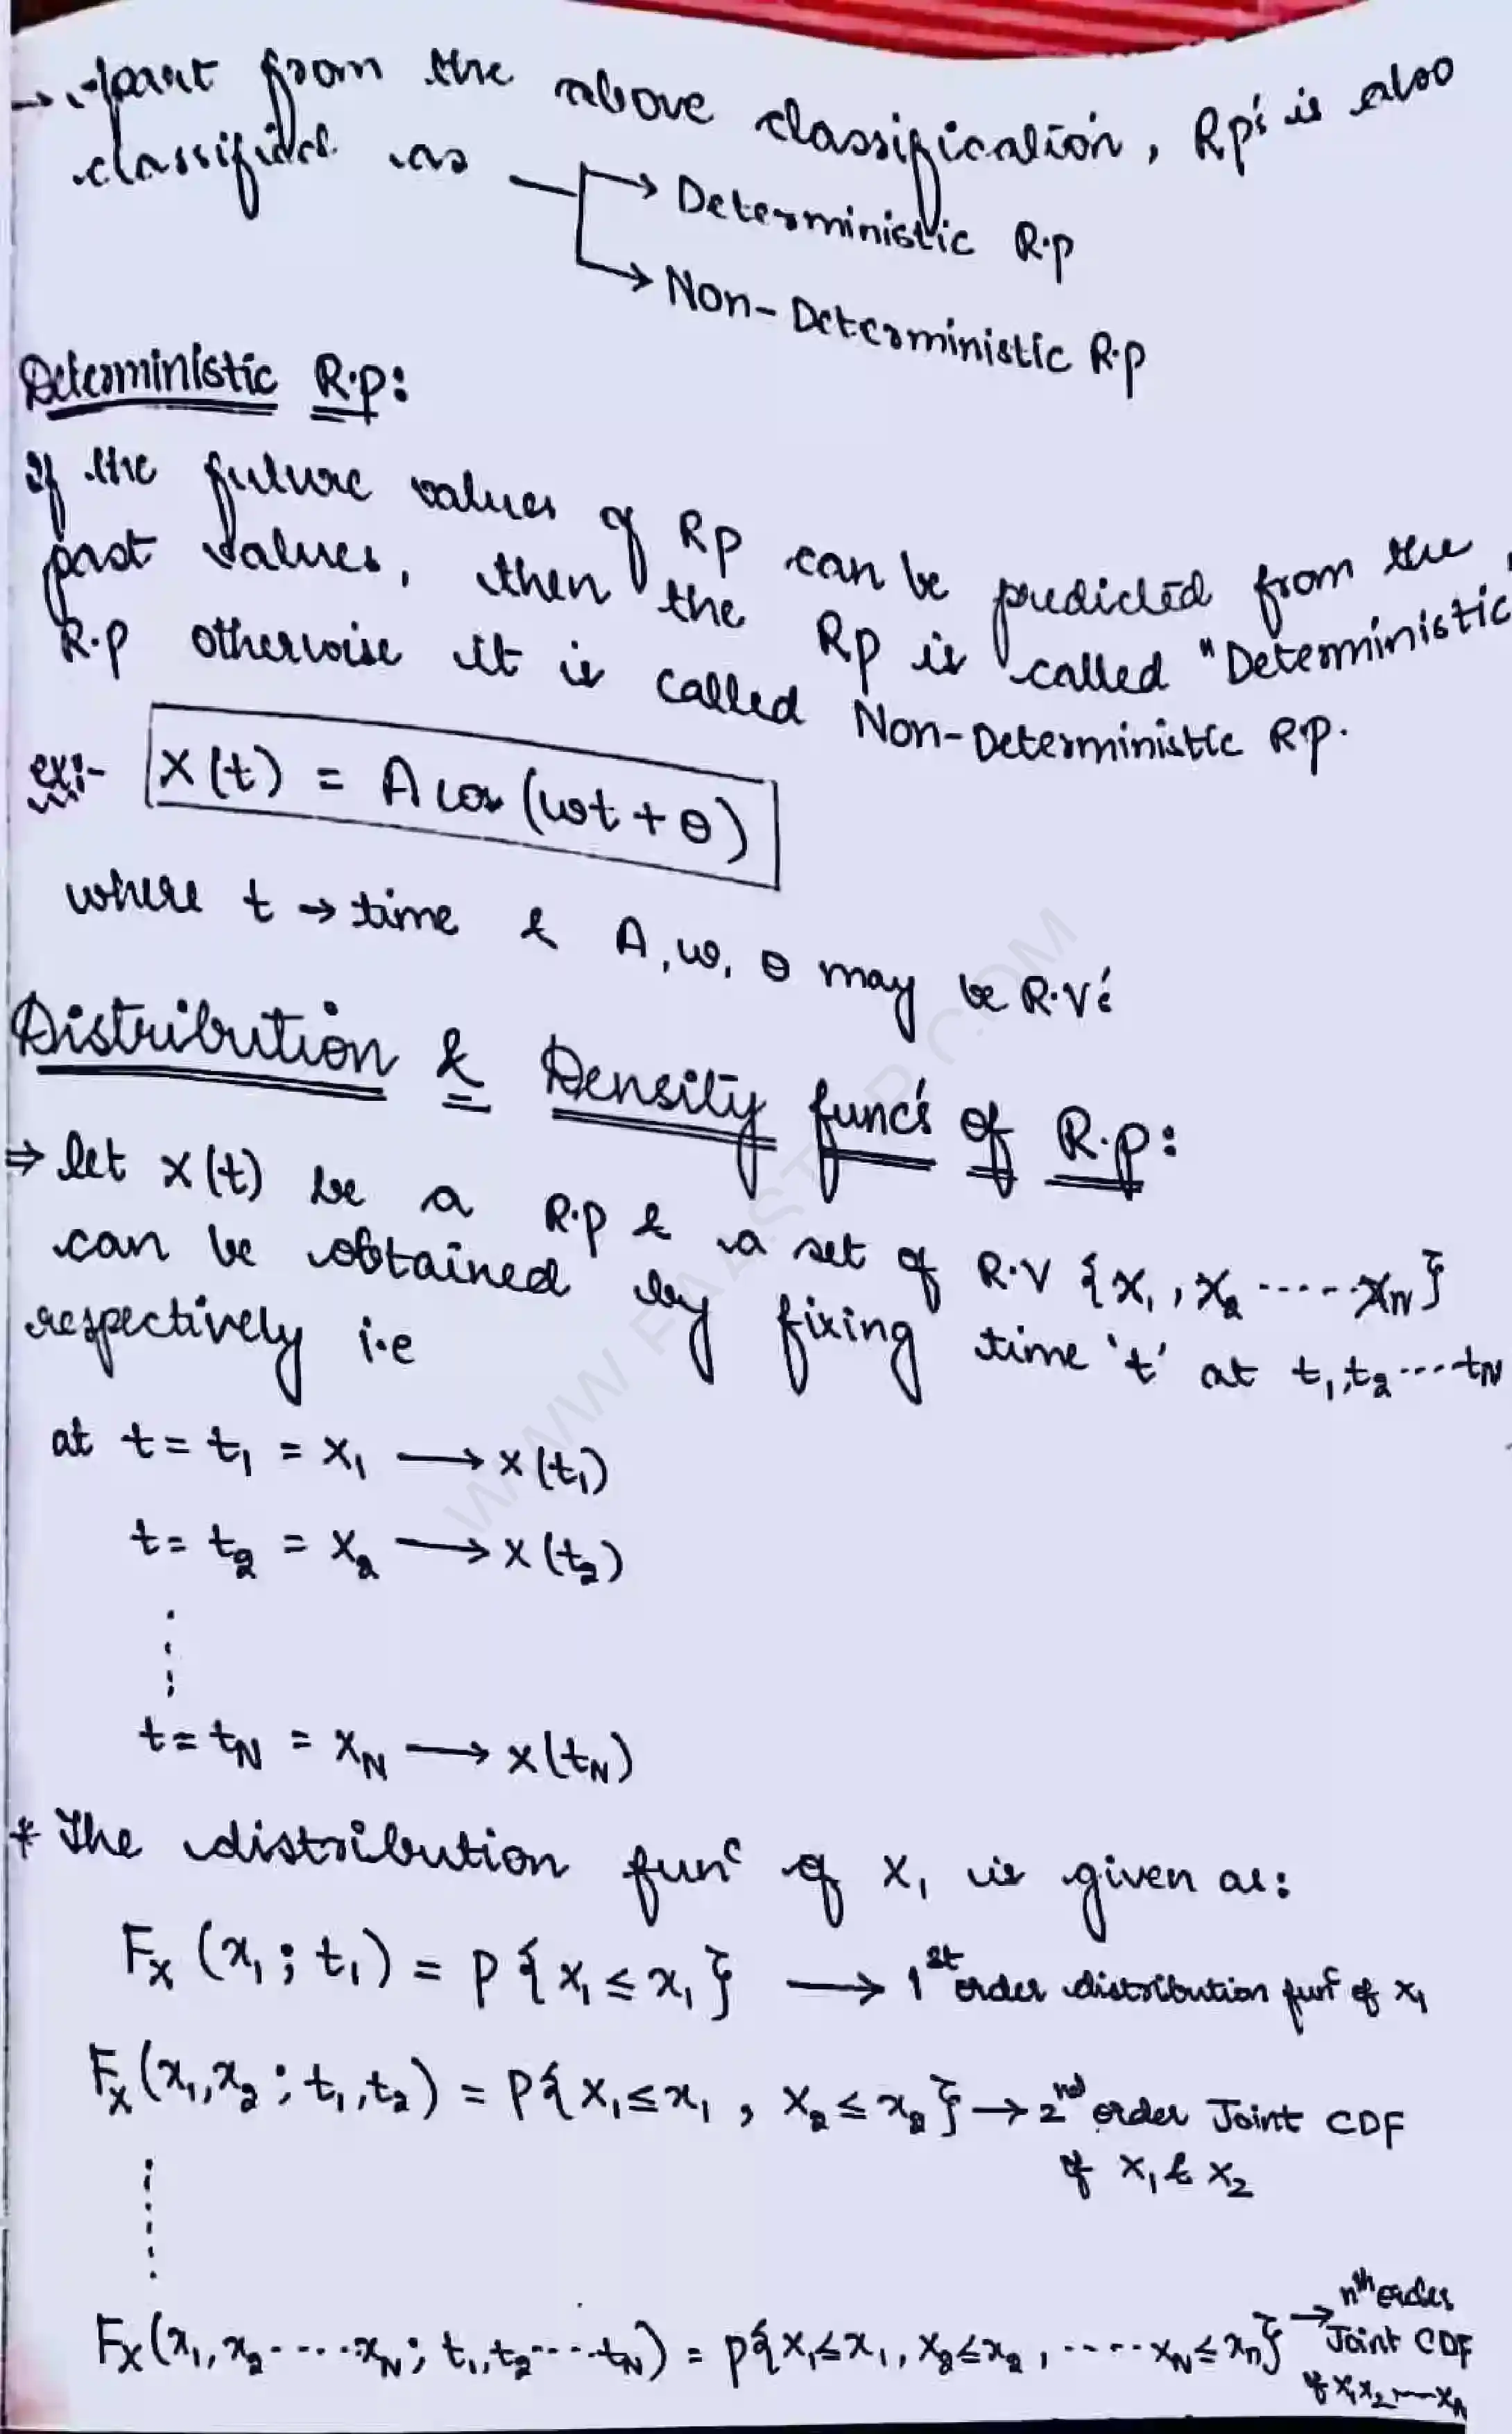 → Apart from the above classification, Rp's is also
classified as → Deterministic R.p
→ Non-Deterministic R.p
Deterministic R.p:
If the future values of Rp can be predicted from the
past values, then the Rp is called "Deterministic
R.p otherwise it is called Non-Deterministic Rp.
ex:- X(t) = A cos (ωt + θ)
where t → time & A, ω, θ may be R.V's
Distribution & Density func's of R.p:
⇒ let X(t) be a R.p & a set of R.V {X₁, X₂ ------ XN}
can be obtained by fixing time 't' at t₁, t₂ ---- tN
respectively i.e
at t = t₁ = X₁ → X(t₁)
t = t₂ = X₂ → X(t₂)
t = tN = XN → X(tN)
* The distribution funᶜ of X₁ is given as:
Fx (x₁; t₁) = P{X₁ ≤ x₁} → 1st order distribution funᶜ of X₁
Fx (x₁, x₂; t₁, t₂) = P{X₁ ≤ x₁, X₂ ≤ x₂} → 2nd order Joint CDF
of X₁ & X₂
Fx (x₁, x₂ ------ xN; t₁, t₂ ----- tN) = P{X₁ ≤ x₁, X₂ ≤ x₂, ----- XN ≤ xn} → nth order
Joint CDF
of X₁ X₂ --- Xn
WWW.FA